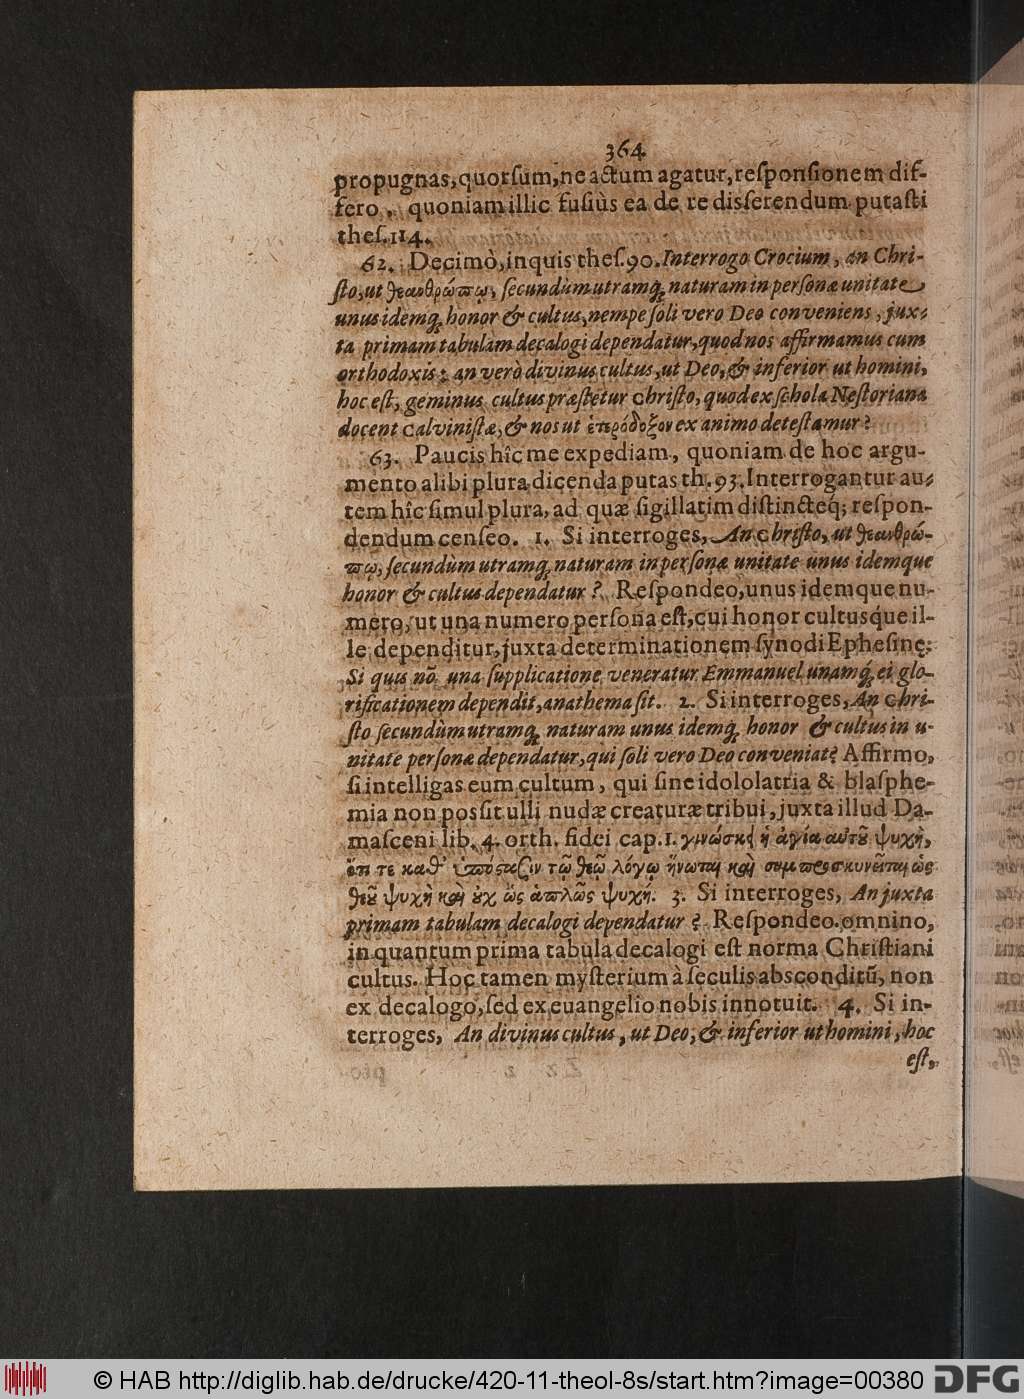 364
propugnas, quorſum, ne actum agatur, reſponſionem dif-
fero, quoniam illic fuſiùs ea de re disſerendum putaſti
theſ. 114.
62. Decimò, inquis theſ. 90. Interrogo Crocium, an Chri-
ſto, ut θεανθρώπῳ, ſecundùm utramq; naturam in perſonæ unitate
unus idemq; honor & cultus, nempe ſoli vero Deo conveniens, jux-
ta primam tabulam decalogi dependatur, quod nos affirmamus cum
orthodoxis: an verò divinus cultus, ut Deo, & inferior ut homini,
hoc eſt, geminus cultus præſtetur Chriſto, quod ex ſchola Neſtoriana
docent Calviniſtæ, & nos ut ἑτερόδοξον ex animo deteſtamur?
63. Paucis hîc me expediam, quoniam de hoc argu-
mento alibi plura dicenda putas th. 93. Interrogantur au-
tem hîc ſimul plura, ad quæ ſigillatim diſtinctéq; reſpon-
dendum cenſeo. 1. Si interroges, An Chriſto, ut θεανθρώ-
πῳ, ſecundùm utramq; naturam in perſonæ unitate unus idemque
honor & cultus dependatur? Reſpondeo, unus idemque nu-
mero, ut una numero perſona eſt, cui honor cultusq́ue il-
le dependitur, juxta determinationem ſynodi Epheſinę:
Si quis nō una ſupplicatione veneratur Emmanuel unamq́; ei glo-
rificationem dependit, anathema ſit. 2. Si interroges, An Chri-
ſto ſecundùm utramq; naturam unus idemq́; honor & cultus in u-
nitate perſonæ dependatur, qui ſoli vero Deo conveniat? Affirmo,
ſi intelligas eum cultum, qui ſine idololatria & blaſphe-
mia non posſit ulli nudæ creaturæ tribui, juxta illud Da-
maſceni lib. 4. orth. fidei cap. 1. γινώσκει ἡ ἁγία αυτοῦ ψυχὴ,
ὅτι τε καθ᾽ ὑπόστασιν τῷ θεῷ λόγῳ ἥνωται καὶ συμπροσκυνεῖται ὡς
θεοῦ ψυχὴ καὶ οὐχ ὥς ἁπλῶς ψυχή. 3. Si interroges, An juxta
primam tabulam decalogi dependatur? Reſpondeo omnino,
in quantum prima tabula decalogi eſt norma Chriſtiani
cultus. Hoc tamen myſterium à ſeculis abſconditũ, non
ex decalogo, ſed ex euangelio nobis innotuit. 4. Si in-
terroges, An divinus cultus, ut Deo, & inferior ut homini, hoc
eſt,
© HAB http://diglib.hab.de/drucke/420-11-theol-8s/start.htm?image=00380
DFG